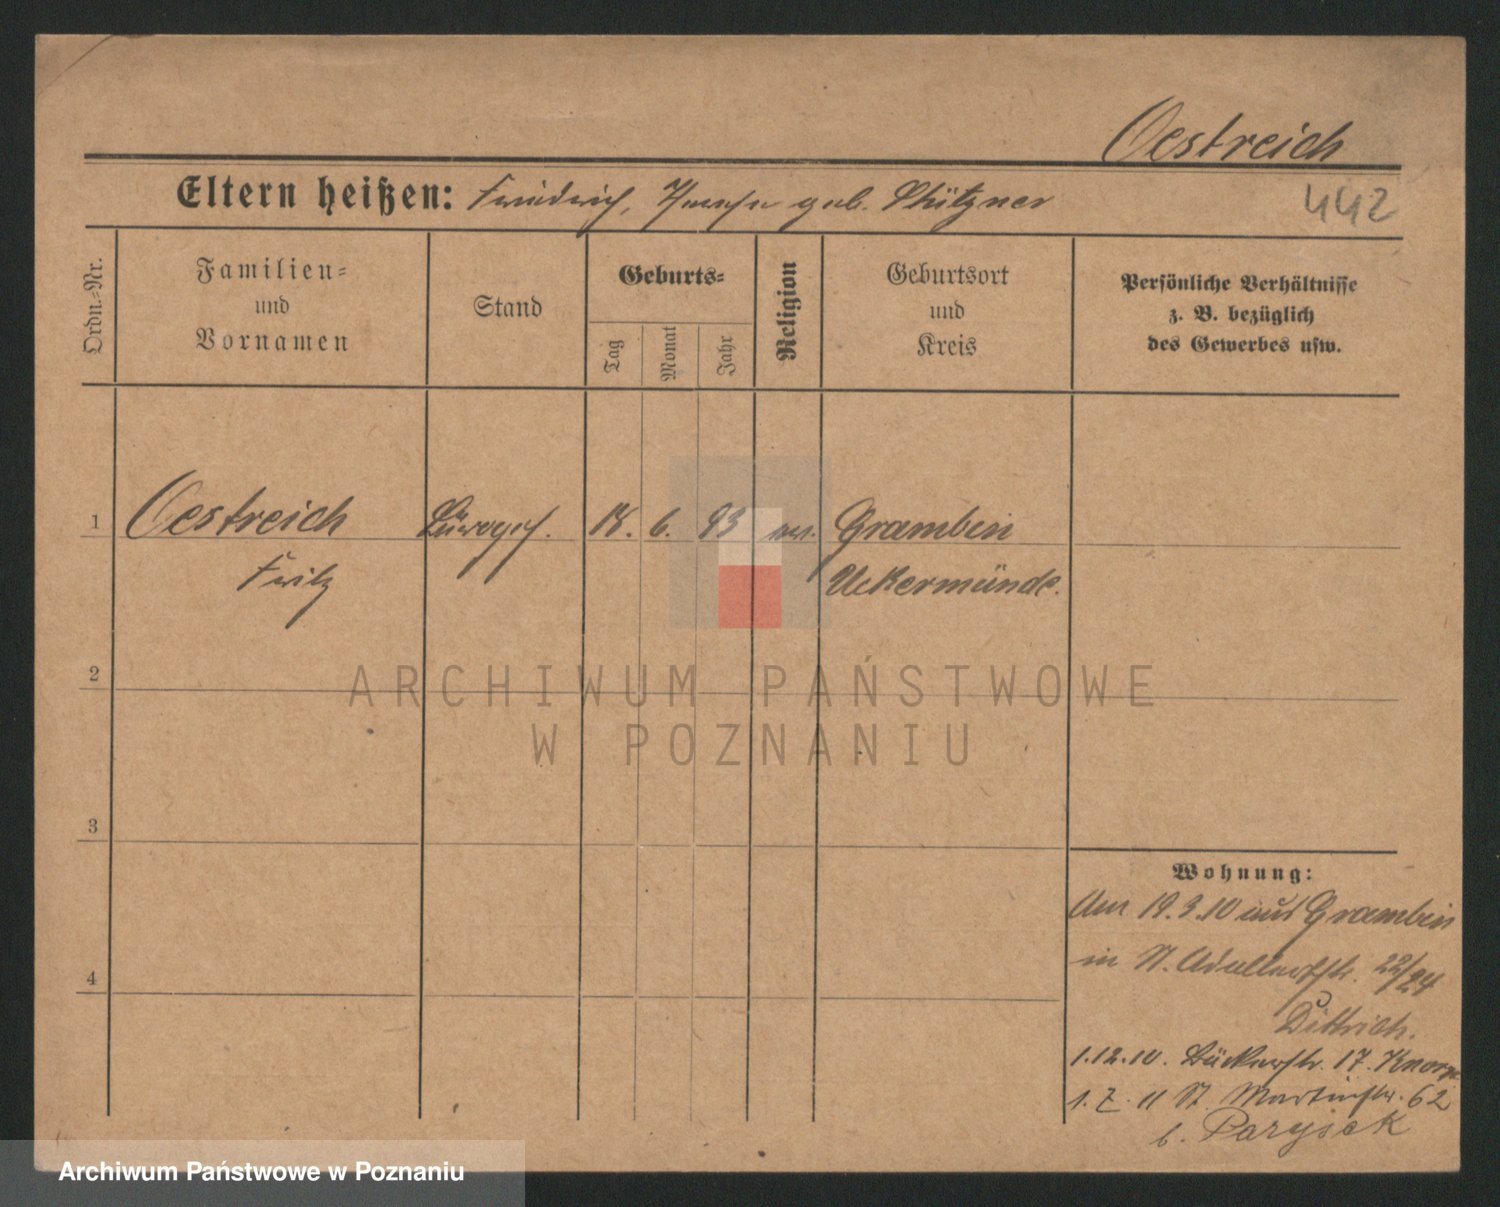 Oestreich
Eltern heißen: Friedrich, geb. Schützner
442
Ordn.-Nr.
Familien-
und
Vornamen
Stand
Geburts-
Tag
Monat
Jahr
Religion
Geburtsort
und
Kreis
Persönliche Verhältnisse
z. B. bezüglich
des Gewerbes usw.
1 Oestreich 18. 6. 93 ev. Grambin
Fritz Uekermünde.
2
ARCHIWUM PAŃSTWOWE
W POZNANIU
3
Wohnung:
Am 19.3.10 aus Grambin
in St. Adalbertstr. 22/24
4
Dittrich.
1.12.10. Bäckerstr. 17.
1. 7. 11 St. Martinstr. 62
b. Parysek
Archiwum Państwowe w Poznaniu